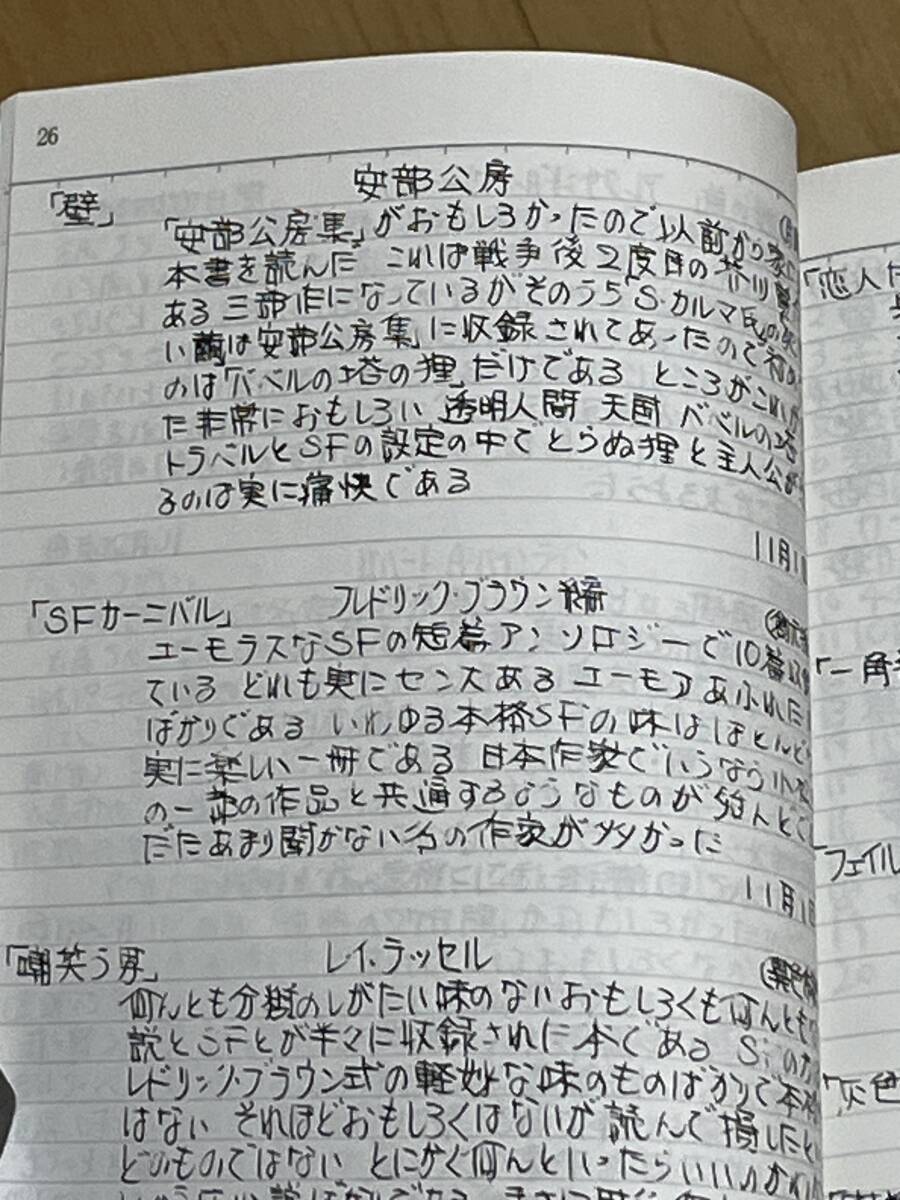 26
安部公房
「壁」
「安部公房集」がおもしろかったので以前から家に
本書を読んだ これは戦争後2度目の芥川賞
ある 三部作になっているがそのうち「S・カルマ氏」の
い繭は安部公房集」に収録されてあったので初
のは「バベルの塔の狸」だけである ところがこれが
た非常におもしろい 透明人間 天国 バベルの塔
トラベルとSFの設定の中でとらぬ狸と主人公が
るのは実に痛快である
11月1
「SFカーニバル」 フレドリック・ブラウン編
ユーモラスなSFの短篇アンソロジーで10篇
ている どれも実にセンスある ユーモアあふれた
ばかりである いわゆる本格SFの味はほとんど
実に楽しい一冊である 日本作家でいうなら
の一部の作品と共通するようなものがほとんど
だたあまり聞かない名の作家が多かった
11月1
「嘲笑う男」 レイ・ラッセル
何んとも分類のしがたい味のないおもしろくも何んとも
説とSFとが半々に収録された本である SFの方
レドリック・ブラウン式の軽妙な味のものばかりで本格
はない それほどおもしろくはないが 読んで損したと
どのものではない とにかく何んといったらいいのか
「恋人
「一角
「フェイル
「灰色